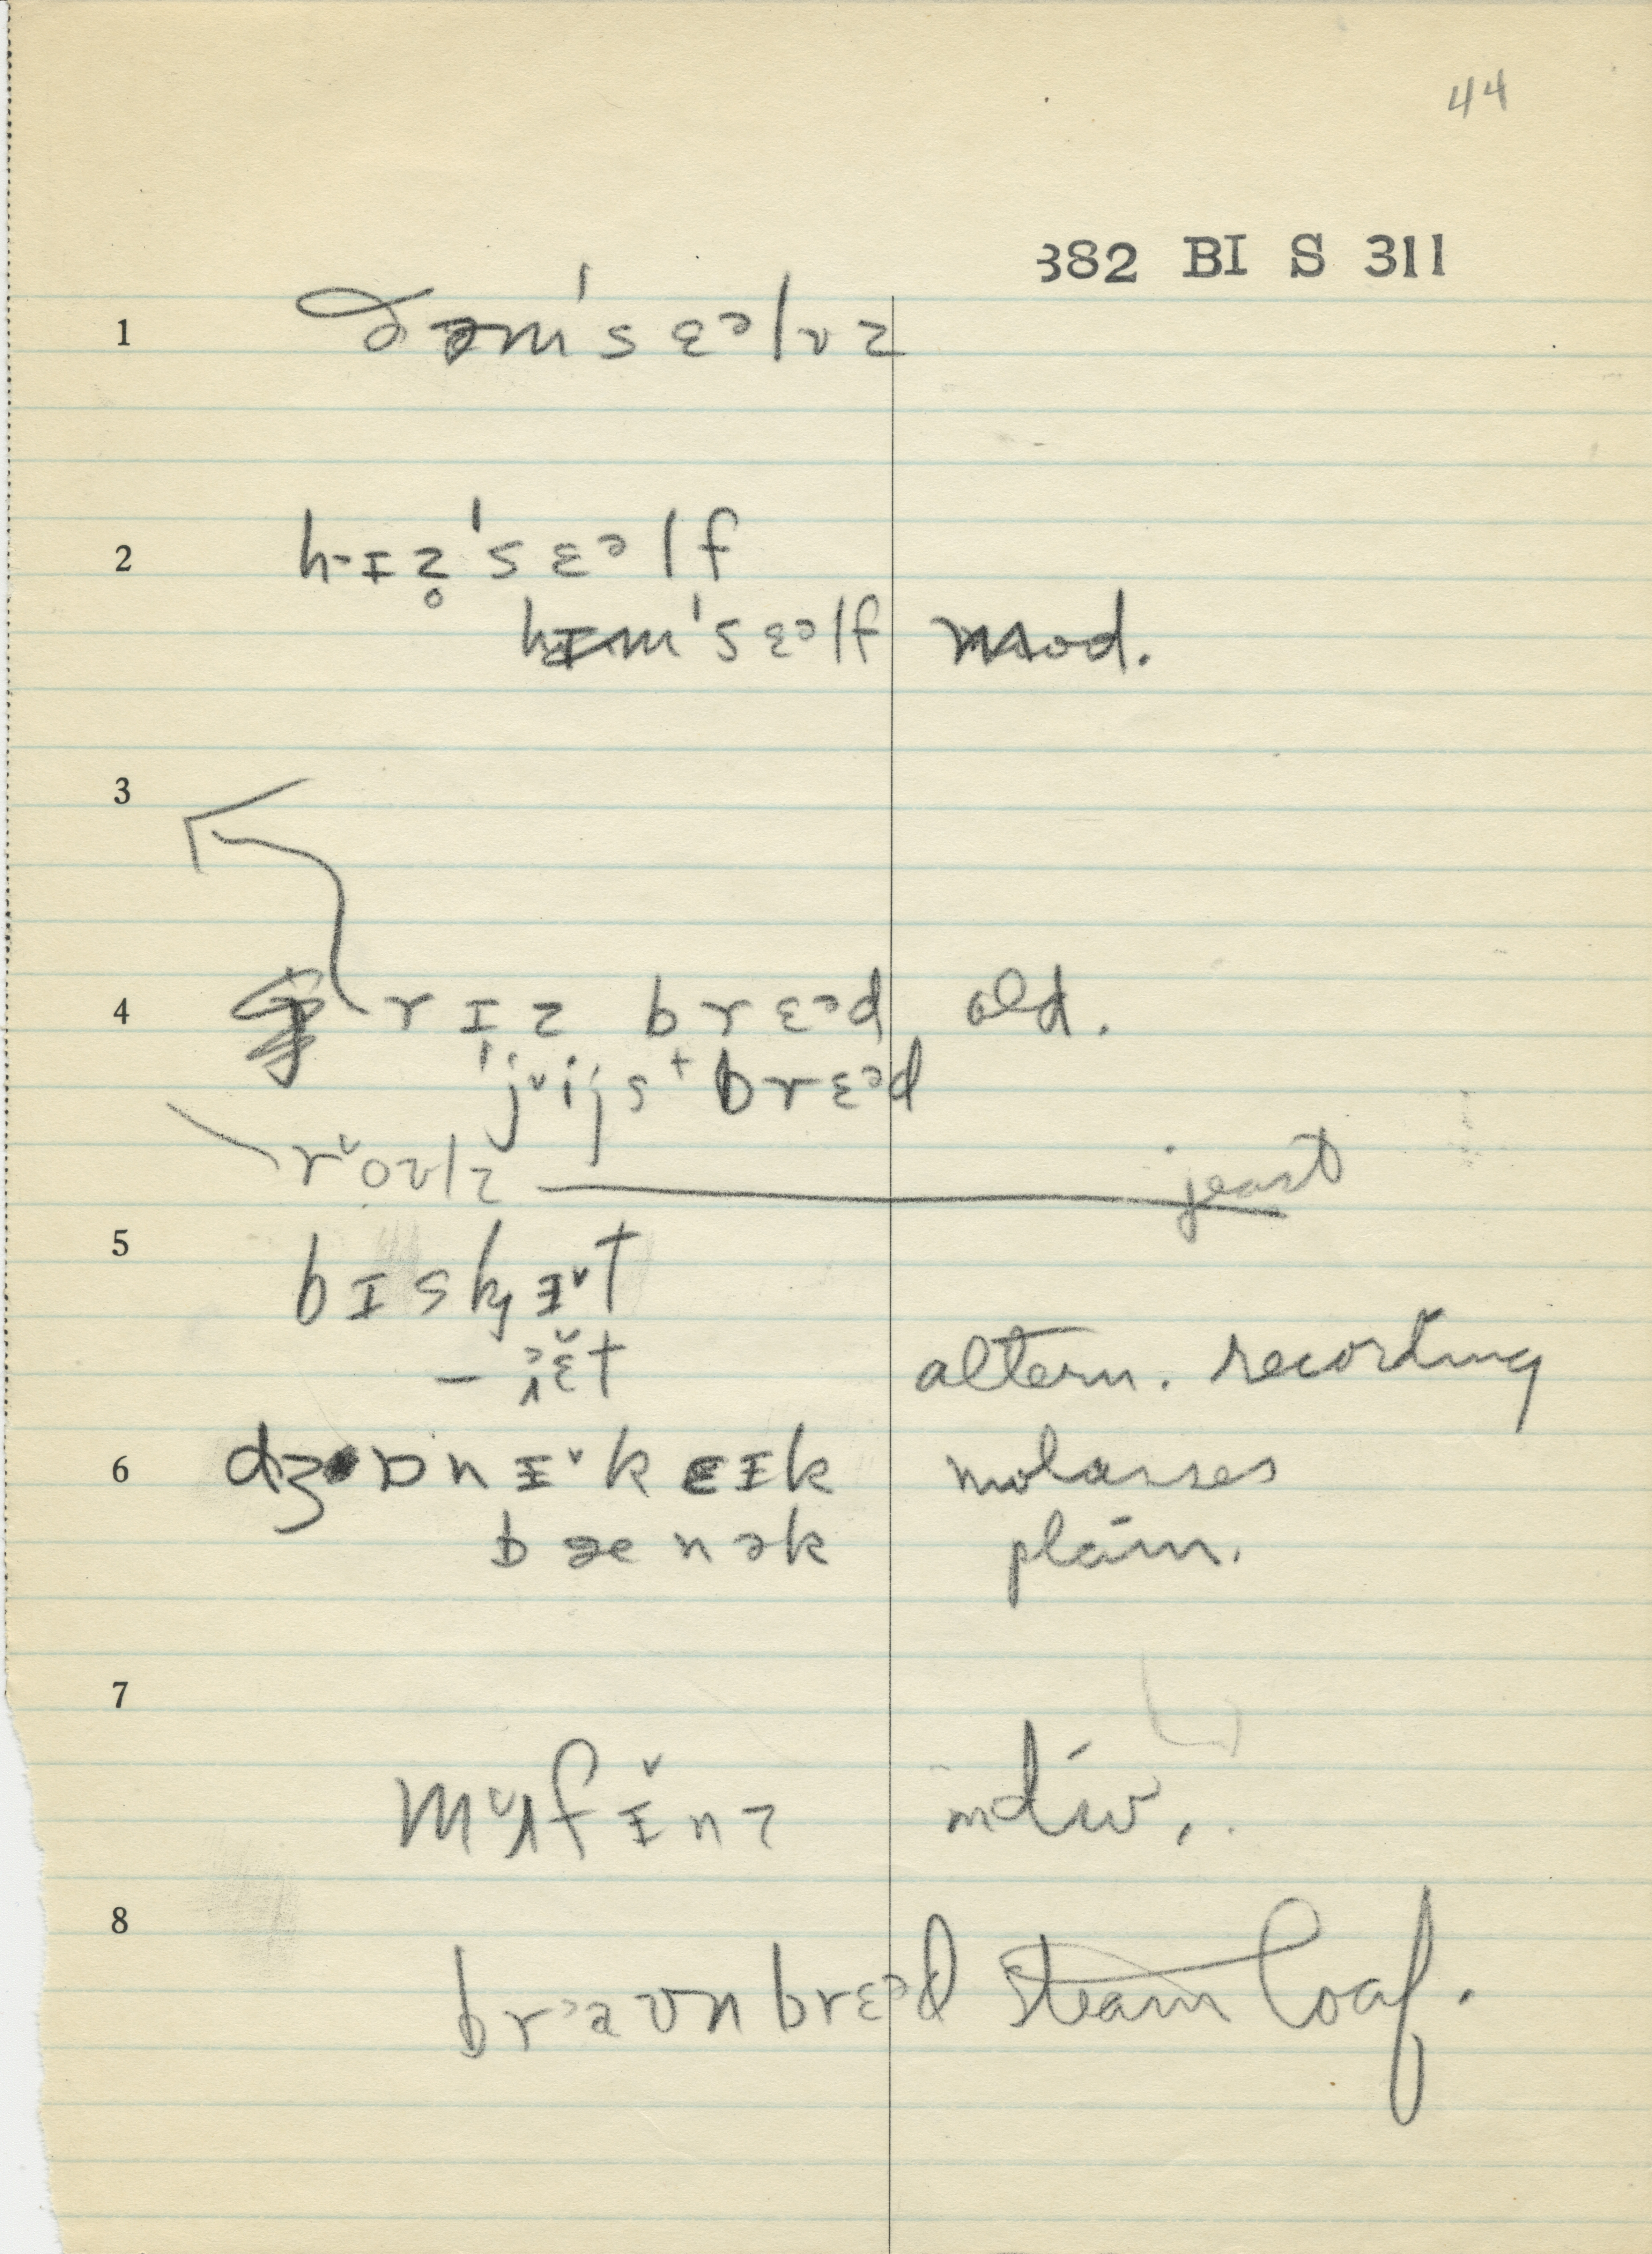 44
382 BI S 311
1 ðəm'sɛᵊlvz
2 hɪz̥'sɛᵊlf
hɪm'sɛᵊlf mod.
3
4 rɪz brɛᵊd old.
'jˇijstbrɛᵊd
rˇoʊlz jeast
5 bɪskɪˇt
– ɛ̌t altern. recording
6 dʒɒnɪˇkeɪk molasses
bænək plain.
7
mˇʌfɪ̌nz indiv..
8
brᵊaʊnbrɛᵊd steam loaf.